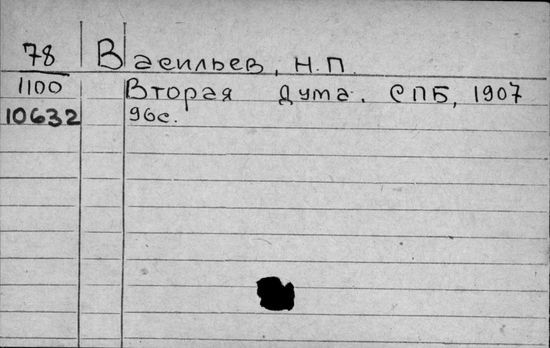 78 Васильев, Н.П.
1100 Вторая Дума. СПБ, 1907
10632 96с.